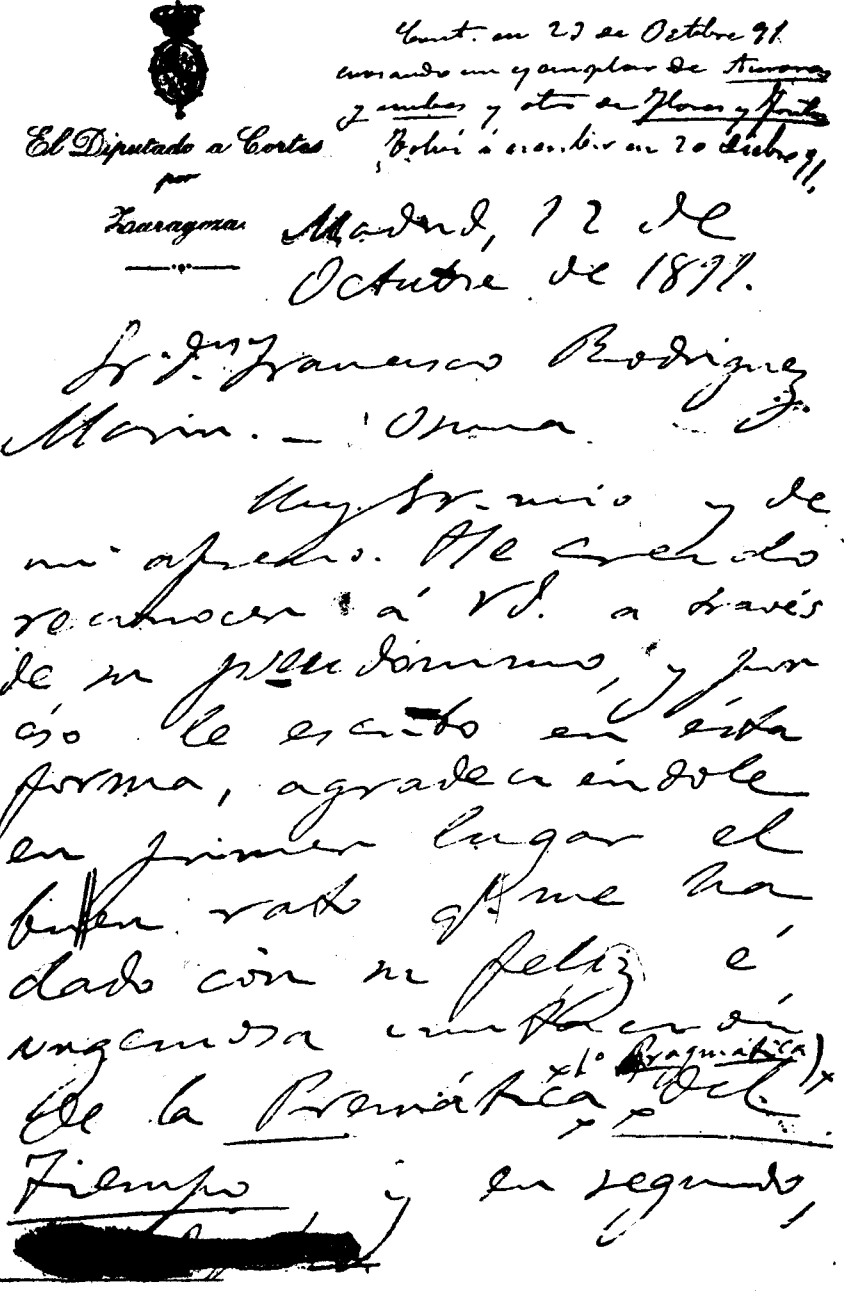 Cont. en 23 de Octubre 91.
enviando un ejemplar de Auroras
y nubes y otro de Flores y Frutos
Volví á escribir en 20 91.
El Diputado a Cortes
por
Zaragoza
Madrid, 12 de
Octubre de 1891.
Sr. Dn. Francisco Rodriguez
Marin. — Osuna
Muy Sr. mio y de
mi aprecio. He creido
reconocer á Vd. a través
de su pseudónimo, y por
eso le escribo en ésta
forma, agradeciéndole
en primer lugar el
buen rato q. me ha
dado con su feliz é
ingeniosa imitación
(ó Pragmática)
de la Premática del
Tiempo, y en segundo,